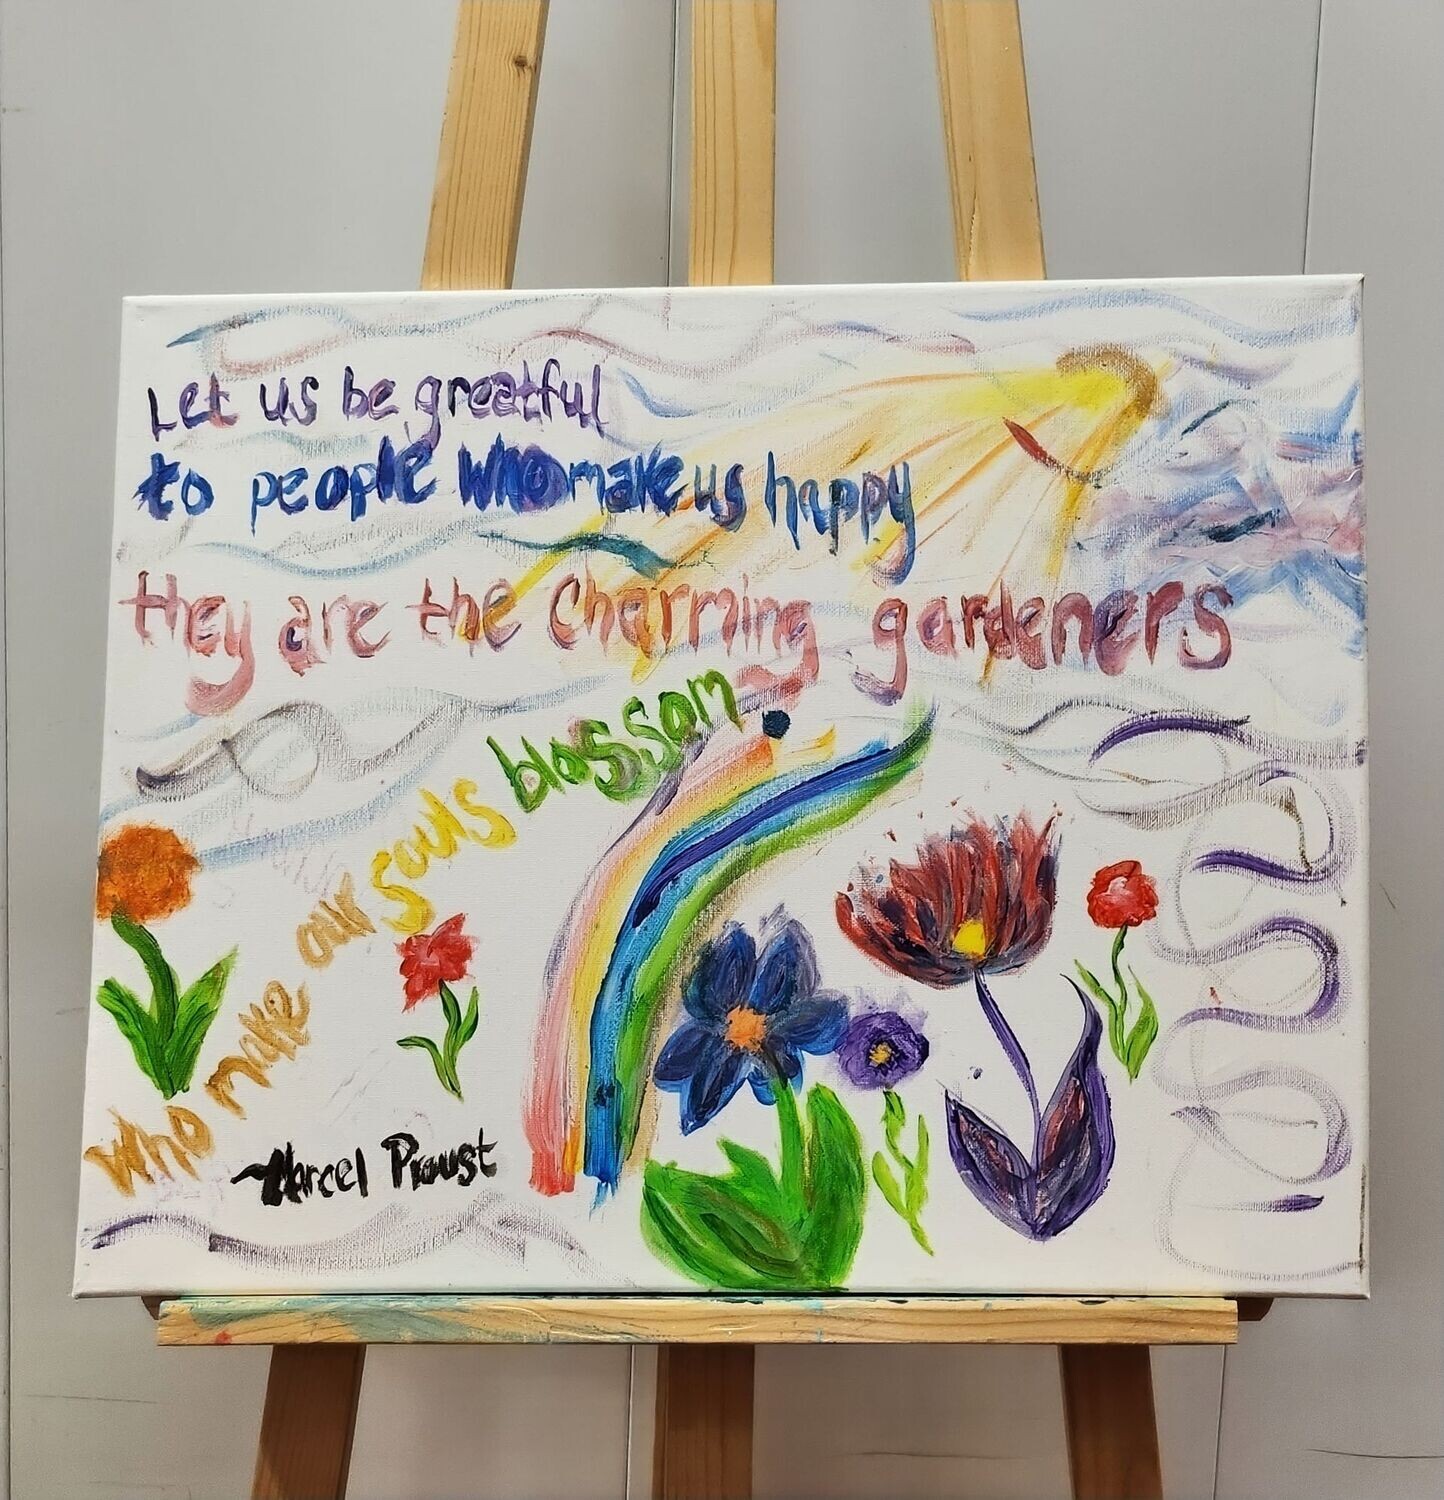 Let us be greatful
to people who make us happy
they are the charming gardeners
who make our souls blossom
~Marcel Proust